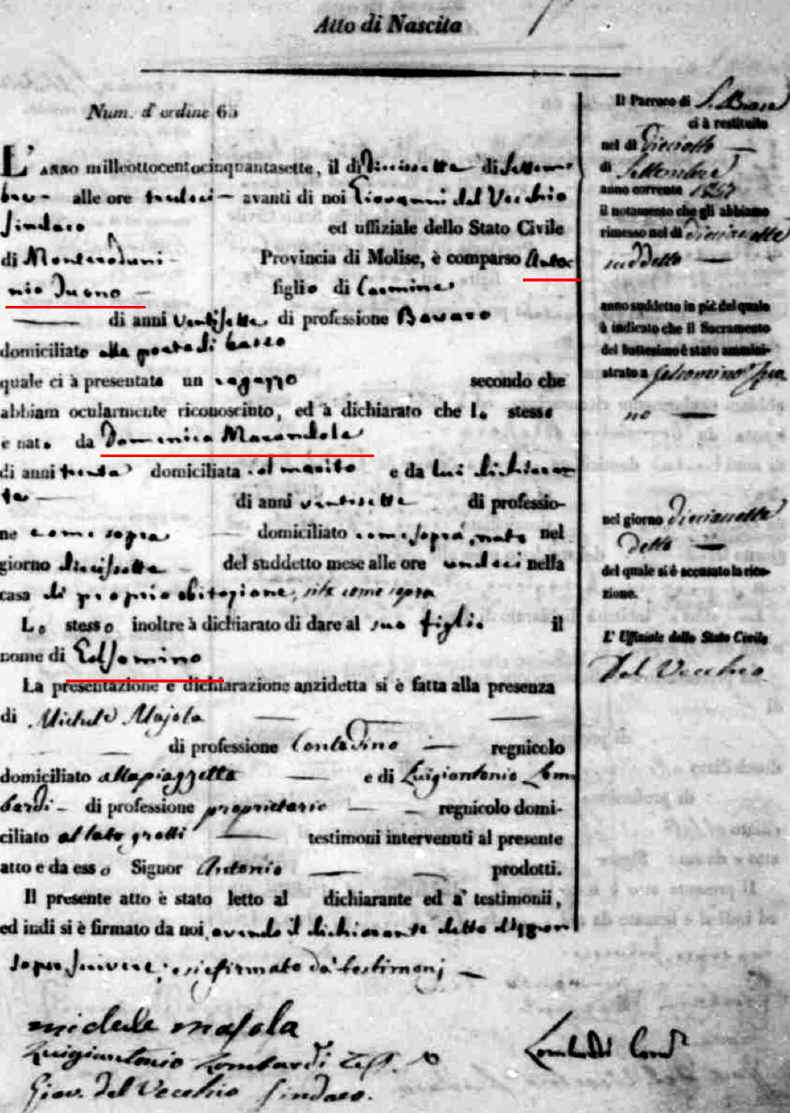 Atto di Nascita
Num. d'ordine 65
L'anno milleottocentocinquantasette, il dì Diecissette di Settem
bre alle ore tredeci avanti di noi Giovanni del Vecchio
Sindaco ed uffiziale dello Stato Civile
di Monteroduni Provincia di Molise, è comparso Anto
nio figlio di Carmine
di anni ventisette di professione
domiciliato alla porta di basso
quale ci à presentato un ragazzo secondo che
abbiam ocularmente riconosciuto, ed à dichiarato che lo stesso
è nato da Domenica
di anni trenta domiciliata col marito e da lui dichiaran
te di anni ventisette di professio-
ne come sopra domiciliato come sopra, nato nel
giorno diecissette del suddetto mese alle ore undeci nella
casa di propria abitazione, sita come sopra
Lo stesso inoltre à dichiarato di dare al suo figlio il
nome di
La presentazione e dichiarazione anzidetta si è fatta alla presenza
di Michele Majola
di professione Contadino regnicolo
domiciliato alla piazzetta e di Luigiantonio Lom
bardi di professione proprietario regnicolo domi-
ciliato al lato grotti testimoni intervenuti al presente
atto e da esso Signor Antonio prodotti.
Il presente atto è stato letto al dichiarante ed a' testimonii,
ed indi si è firmato da noi, avendo il dichiarante detto d'ignorar
saper scrivere; e si è firmato da' testimonj
michele majola
Luigiantonio Lombardi Test.
Giov. del Vecchio Sindaco.
Il Parroco di S. Biase
ci à restituito
nel dì Dieciotto
di Settembre
anno corrente 1857
il notamento che gli abbiamo
rimesso nel dì diecissette
suddetto
anno suddetto in piè del quale
à indicato che il Sacramento
del battesimo è stato ammini-
strato a
no
nel giorno diecissette
detto
del quale si è accusato la rice-
zione.
L'Uffiziale dello Stato Civile
Del Vecchio